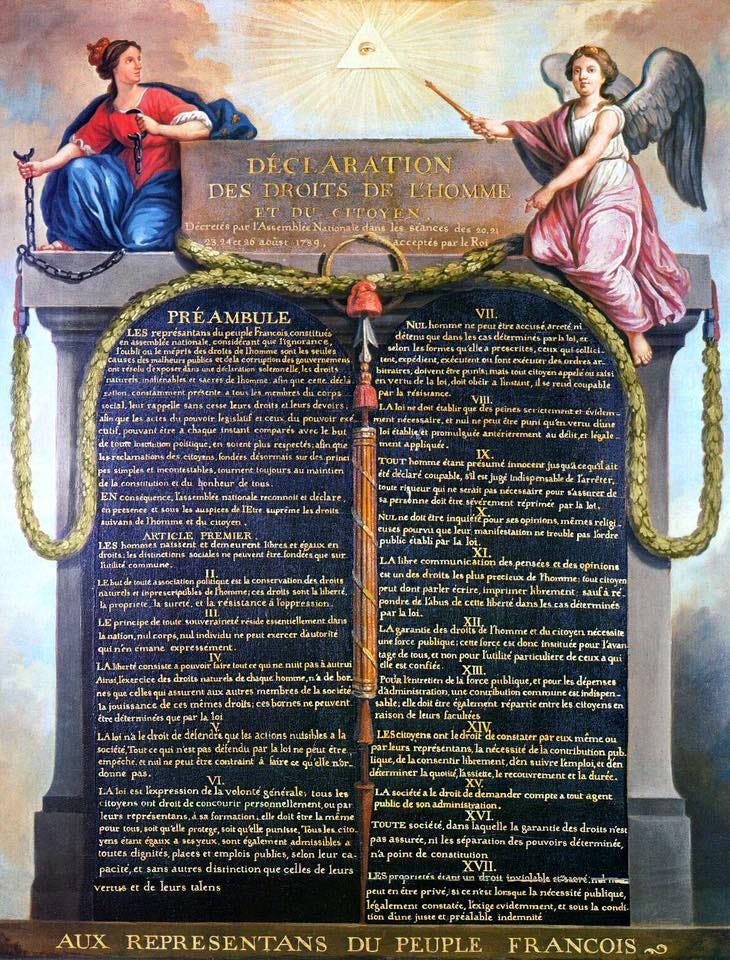 DÉCLARATION
DES DROITS DE L'HOMME
ET DU CITOYEN,
Décretés par l'Assemblée Nationale dans les séances des 20, 21
23, 24 et 26 aoûst 1789, acceptés par le Roi
PRÉAMBULE
LES représantans du peuple Francois, constitués
en assemblée nationale, considérant que l'ignorance,
l'oubli ou le mépris des droits de l'homme sont les seules
causes des malheurs publics et de la corruption des gouvernemens
ont résolu d'exposer dans une déclaration solemnelle, les droits
naturels, inaliénables et sacrés de l'homme; afin que cette décla
ration, constamment présente a tous les membres du corps
social, leur rappelle sans cesse leurs droits et leurs devoirs;
afin que les actes du pouvoir législatif et ceux du pouvoir exé
cutif, pouvant être à chaque instant comparés avec le but
de toute institution politique, en soient plus respectés; afin que
les reclamations des citoyens, fondées désormais sur des princi
pes simples et incontestables, tournent toujours au maintien
de la constitution et du bonheur de tous.
EN conséquence, l'assemblée nationale reconnoit et déclare,
en présence et sous les auspices de l'Etre suprême les droits
suivans de l'homme et du citoyen.
ARTICLE PREMIER.
LES hommes naissent et demeurent libres et égaux en
droits; les distinctions sociales ne peuvent être fondées que sur
l'utilité commune.
II.
LE but de toute association politique est la conservation des droits
naturels et inprescriptibles de l'homme; ces droits sont la liberté,
la propriété, la sureté, et la résistance à l'oppression.
III.
LE principe de toute souveraineté réside essentiellement dans
la nation, nul corps, nul individu ne peut exercer d'autorité
qui n'en émane expressément.
IV.
LA liberté consiste a pouvoir faire tout ce qui ne nuit pas à autrui
Ainsi, l'exercice des droits naturels de chaque homme, n'a de bor-
nes que celles qui assurent aux autres membres de la société
la jouissance de ces mêmes droits; ces bornes ne peuvent
être déterminées que par la loi
V.
LA loi n'a le droit de défendre que les actions nuisibles a la
société, Tout ce qui n'est pas défendu par la loi ne peut être
empêché, et nul ne peut être contraint à faire ce qu'elle n'or-
donne pas.
VI.
LA loi est l'expression de la volonté générale; tous les
citoyens ont droit de concourir personnellement, ou par
leurs représentans, à sa formation, elle doit être la même
pour tous, soit qu'elle protege, soit qu'elle punisse, Tous les cito-
yens étant égaux a ses yeux, sont également admissibles a
toutes dignités, places et emplois publics, selon leur ca-
pacité, et sans autres distinction que celles de leurs
vertus et de leurs talens
VII.
NUL homme ne peut être accusé, arreté ni
détenu que dans les cas déterminés par la loi, et
selon les formes qu'elle a prescrites, ceux qui sollici-
tent, expédient, exécutent ou font exécuter des ordres ar-
bitraires, doivent être punis; mais tout citoyen appelé ou saisi
en vertu de la loi, doit obéir a l'instant, il se rend coupable
par la résistance.
VIII.
LA loi ne doit établir que des peines strictement et évidem-
ment nécessaire, et nul ne peut être puni qu'en vertu d'une
loi établie et promulguée antérierement au délit, et légale-
ment appliquée.
IX.
TOUT homme étant présumé innocent jusqu'a ce qu'il ait
été déclaré coupable, s'il est jugé indispensable de l'arrêter,
toute rigueur qui ne serait pas nécessaire pour s'assurer de
sa personne doit être sévérement réprimée par la loi.
X.
NUL ne doit être inquiété pour ses opinions, mêmes religi-
euses pourvu que leur manifestation ne trouble pas l'ordre
public établi par la loi.
XI.
LA libre communication des pensées et des opinions
est un des droits les plus precieux de l'homme; tout citoyen
peut dont parler écrire, imprimer librement; sauf à ré-
pondre de l'abus de cette liberté dans les cas déterminés
par la loi.
XII.
LA garantie des droits de l'homme et du citoyen nécessite
une force publique; cette force est donc instituée pour l'avan-
tage de tous, et non pour l'utilité particuliere de ceux a qui
elle est confiée.
XIII.
Pour l'entretien de la force publique, et pour les dépenses
d'administration, une contribution commune est indispen-
sable; elle doit être également répartie entre les citoyens en
raison de leurs facultées
XIV.
LES citoyens ont le droit de constater par eux même ou
par leurs représentans, la nécessité de la contribution pub-
lique, de la consentir librement, d'en suivre l'emploi, et d'en
déterminer la quotité, l'assiette, le recouvrement et la durée.
XV.
LA société a le droit de demander compte a tout agent
public de son administration.
XVI.
TOUTE société, dans laquelle la garantie des droits n'est
pas assurée, ni la séparation des pouvoirs déterminée,
n'a point de constitution
XVII.
LES propriétés étant un droit inviolable et sacré, nul ne
peut en être privé, si ce n'est lorsque la nécessité publique,
légalement constatée, l'exige evidemment, et sous la condi-
tion d'une juste et préalable indemnité
AUX REPRESENTANS DU PEUPLE FRANCOIS